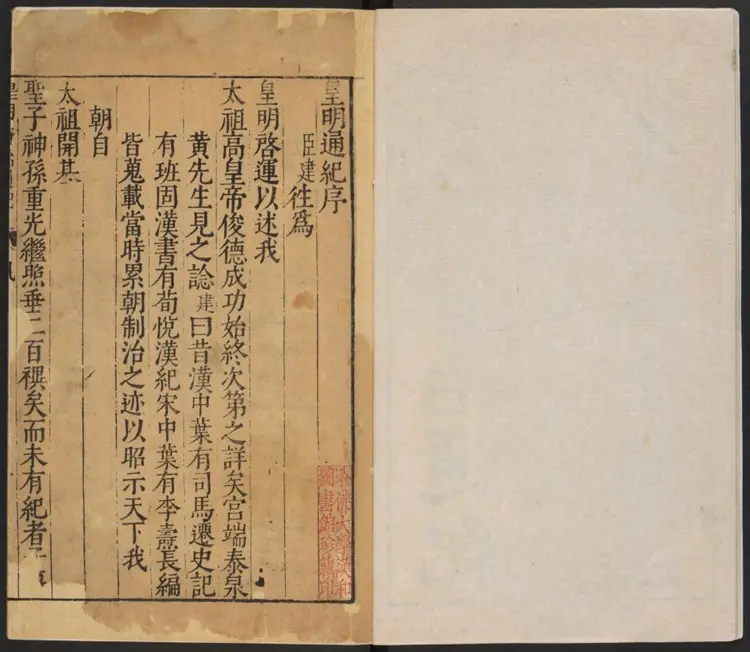 皇明通紀序
臣建徃爲
皇明啓運以述我
太祖高皇帝俊德成功始終次第之詳矣宫端泰泉
黄先生見之諗建曰昔漢中葉有司馬遷史記
有班固漢書有荀悅漢紀宋中葉有李燾長編
皆蒐載當時累朝制治之迹以昭示天下我
朝自
太祖開基
聖子神孫重光繼照垂二百禩矣而未有紀者